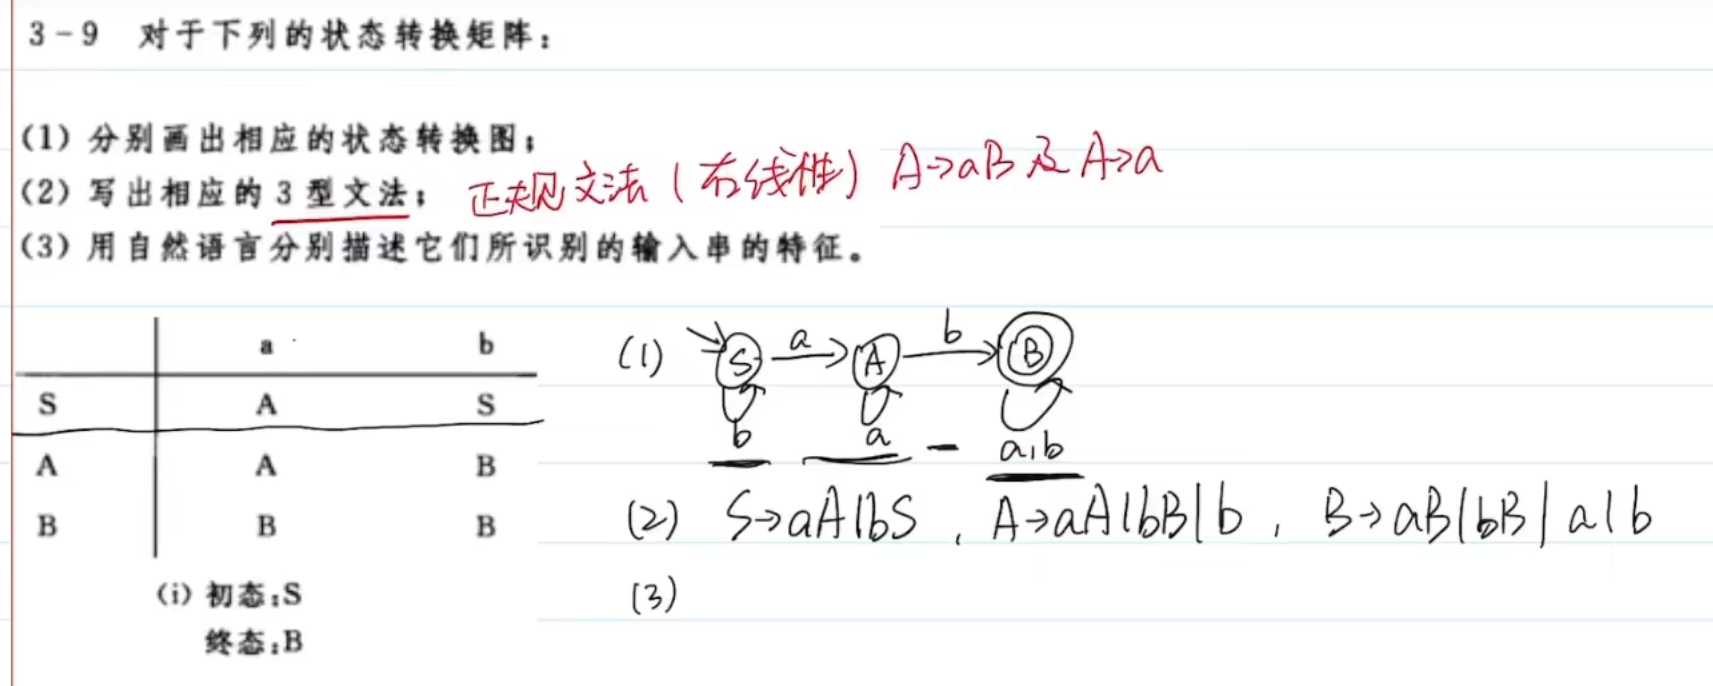 3-9 对于下列的状态转换矩阵：
(1) 分别画出相应的状态转换图；
(2) 写出相应的3型文法； 正规文法(右线性) A→aB及A→a
(3) 用自然语言分别描述它们所识别的输入串的特征。
a b
S A S
A A B
B B B
(i) 初态：S
终态：B
(1) S a A b B
b a a,b
(2) S→aA|bS , A→aA|bB|b , B→aB|bB|a|b
(3)